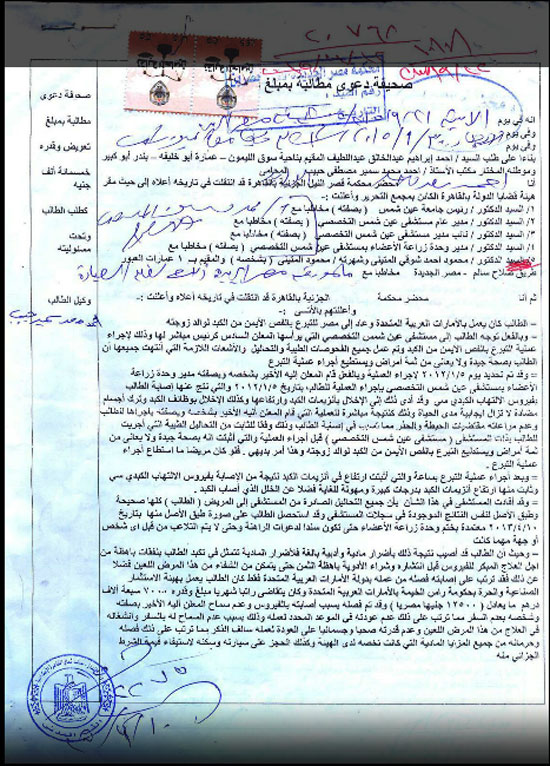 صحيفة دعوى مطالبة بمبلغ
صحيفة دعوى
مطالبة بمبلغ
تعويض وقدره
خمسمائة ألف
جنيه
كطلب الطالب
وتحت
مسئوليته
وكيل الطالب
انه في يوم
وفي يوم
وفي يوم
بناءا على طلب السيد / احمد ابراهيم عبدالخالق عبداللطيف المقيم بناحية سوق الليمون – عمارة أبو خليفه – بندر أبو كبير
وموطنه المختار مكتب الأستاذ / احمد محمد سمير مصطفى حبيب المحامى
أنا محضر محكمة قصر النيل الجزئية بالقاهرة قد انتقلت في تاريخه أعلاه إلى حيث مقر
هيئة قضايا الدولة بالقاهرة الكائن بمجمع التحرير وأعلنت :
١/ السيد الدكتور / رئيس جامعة عين شمس ( بصفته ) مخاطبا مع
١/ السيد الدكتور / مدير عام مستشفى عين شمس التخصصي ( بصفته ) مخاطبا مع
١/ السيد الدكتور / نائب مدير مستشفى عين شمس التخصصي ( بشخصه ) مخاطبا مع
١/ السيد الدكتور / مدير وحدة زراعة الأعضاء بمستشفى عين شمس التخصصي ( بصفته ) مخاطبا مع
السيد الدكتور / محمود احمد شوقي المتينى وشهرته / محمود المتينى ( بشخصه ) والمقيم بـ ١ عمارات العبور
طريق صلاح سالم - مصر الجديدة مخاطبا مع
ثم أنا محضر محكمة الجزئية بالقاهرة قد انتقلت في تاريخه أعلاه وأعلنت :
وأعلنتهم بالأتـــى :-
– الطالب كان يعمل بالأمارات العربية المتحدة وعاد إلى مصر للتبرع بالفص الأيمن من الكبد لوالد زوجته
– وبالفعل توجه الطالب إلى مستشفى عين شمس التخصصي التي يرأسها المعلن السادس كرئيس مباشر لها وذلك لإجراء
عملية التبرع بالفص الأيمن من الكبد وتم عمل جميع الفحوصات الطبية والتحاليل والأشعات اللازمة التي أنتهت جميعها أن
الطالب بصحة جيدة ولا يعانى من ثمة أمراض ويستطيع أجراء عملية التبرع
– وقد تم تحديد يوم ٢٠١٢/١/٥ لإجراء العملية وبالفعل قام المعلن إليه الأخير بشخصه وبصفته مدير وحدة زراعة
الأعضاء بمستشفى عين شمس التخصصي بإجراء العملية للطالب بتاريخ ٢٠١٢/١/٥ والتي نتج عنها إصابة الطالب
بفيروس الالتهاب الكبدي سي وقد أدى ذلك إلى الإخلال بأنزيمات الكبد وارتفاعها وكذلك الإخلال بوظائف الكبد وترك أجسام
مضادة لا تزال ايجابية مدى الحياة وذلك كنتيجة مباشرة للعملية التي قام المعلن أليه الأخير بشخصه وبصفته بأجراها للطالب
وعدم مراعاته مقتضيات الحيطة والحذر مما تسبب في إصابة الطالب وذلك وفقا للثابت من التحاليل الطبية التي أجريت
للطالب بذات المستشفى ( مستشفى عين شمس التخصصي ) قبل أجراء العملية والتي أثبتت انه بصحة جيدة ولا يعانى من
ثمة أمراض ويستطيع التبرع بالفص الأيمن من الكبد لوالد زوجته وهذا أمر بديهي . فلو كان مريضا ما استطاع أجراء
عملية التبرع .
– وبعد أجراء عملية التبرع بساعة والتي أثبتت ارتفاع في أنزيمات الكبد نتيجة من الإصابة بفيروس الالتهاب الكبدي سي
وثابت منها ارتفاع أنزيمات الكبد بدرجات كبيرة ومهولة للغاية فضلا عن الخلل الذي أصاب الكبد .
– وقد أفادت المستشفى في هذا الشأن بأن جميع التحاليل الصادرة من المستشفى إلى المريض ( الطالب ) كلها صحيحة
وطبق الأصل لنفس النتائج الموجودة في سجلات المستشفى وقد استحصل الطالب على صورة طبق الأصل منها بتاريخ
٢٠١٣/٤/١٠ معتمدة بختم وحدة زراعة الأعضاء حتى تكون سندا لدعوات الراهنة وحتى لا يتم التلاعب من قبل اى شخص
أو جهة مهما كانت
– وحيث أن الطالب قد أصيب نتيجة ذلك بأضرار مادية وأدبية بالغة فالأضرار المادية تتمثل في تكبد الطالب بنفقات باهظة من
اجل العلاج المبكر للفيروس قبل انتشاره وشراء الأدوية باهظة الثمن حتى يتمكن من الشفاء من هذا المرض اللعين فضلا
عن ذلك فقد ترتب على إصابته فصله من عمله بدولة الأمارات العربية المتحدة فقط كان الطالب يعمل بهيئة الاستثمار
الصناعية والحرة بحكومة راس الخيمة بالأمارات العربية المتحدة وكان يتقاضى راتبا شهريا مبلغ وقدره ٧٠٠٠ سبعة آلاف
درهم ما يعادل ( ١٢٥٠٠ جنيها مصريا ) وقد تم فصله بسبب أصابته بالفيروس وعدم سماح المعلن أليه الأخير بصفته
وشخصه بعدم السفر مما ترتب على ذلك عدم عودته في الموعد المحدد لعمله وذلك بسبب عدم السماح له بالسفر وانشغاله
في العلاج من هذا المرض اللعين وعدم قدرته صحيا وجسمانيا على العودة لعمله سالف الذكر بما ترتب على ذلك فصله
وحرمانه من جميع المزايا المادية التي كانت تخصه لدى الهيئة وكذلك الحجز على سيارته وسكنه لاستيفاء قيمة الشرط
الجزائي منه